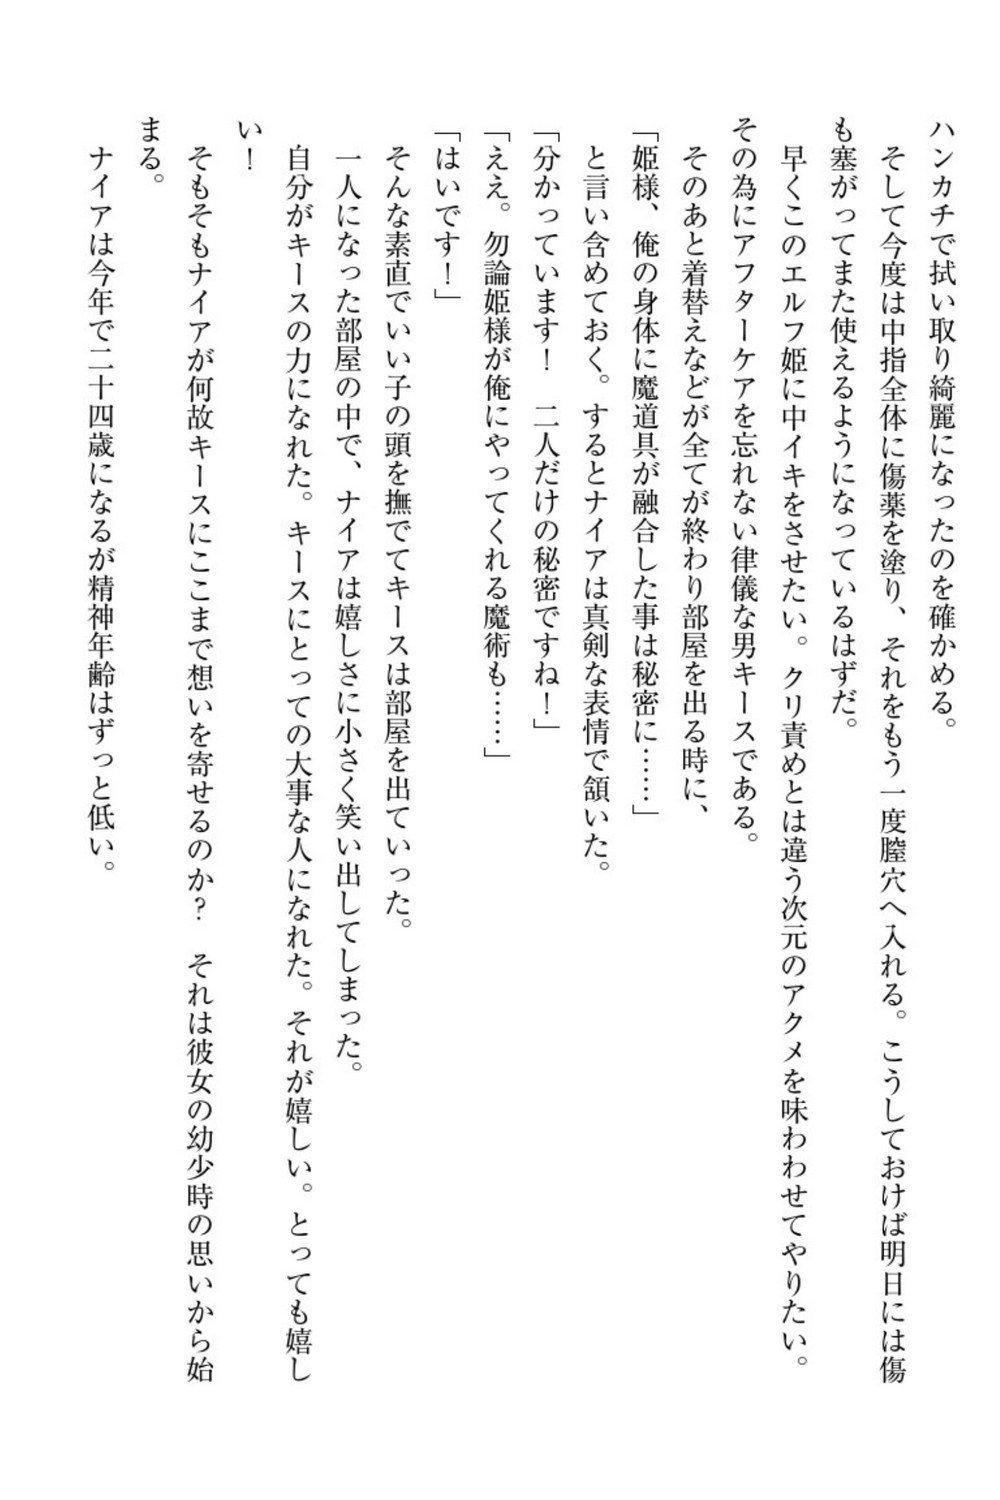 ハンカチで拭い取り綺麗になったのを確かめる。
そして今度は中指全体に傷薬を塗り、それをもう一度膣穴へ入れる。こうしておけば明日には傷
も塞がってまた使えるようになっているはずだ。
早くこのエルフ姫に中イキをさせたい。クリ責めとは違う次元のアクメを味わわせてやりたい。
その為にアフターケアを忘れない律儀な男キースである。
そのあと着替えなどが全てが終わり部屋を出る時に、
「姫様、俺の身体に魔道具が融合した事は秘密に……」
と言い含めておく。するとナイアは真剣な表情で頷いた。
「分かっています！　二人だけの秘密ですね！」
「ええ。勿論姫様が俺にやってくれる魔術も……」
「はいです！」
そんな素直でいい子の頭を撫でてキースは部屋を出ていった。
一人になった部屋の中で、ナイアは嬉しさに小さく笑い出してしまった。
自分がキースの力になれた。キースにとっての大事な人になれた。それが嬉しい。とっても嬉し
い！
そもそもナイアが何故キースにここまで想いを寄せるのか？　それは彼女の幼少時の思いから始
まる。
ナイアは今年で二十四歳になるが精神年齢はずっと低い。